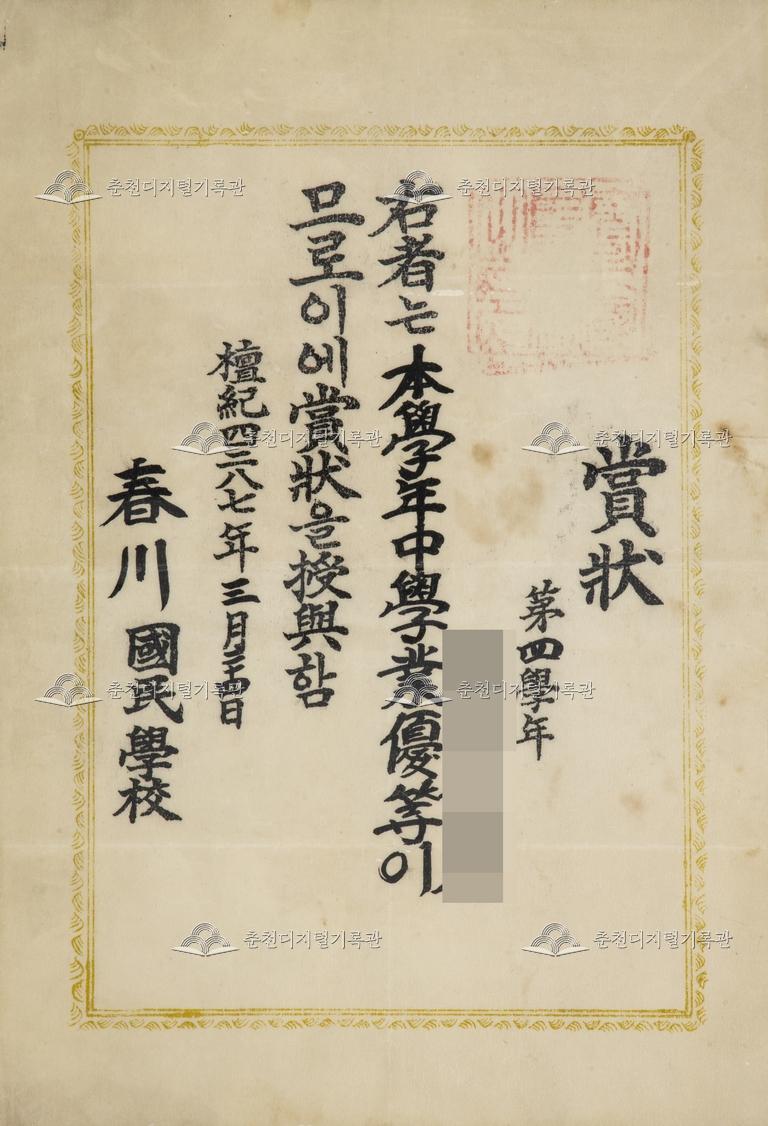 賞狀
第四學年
右者는本學年中學業優等이
므로이에賞狀을授與함
檀紀四二八七年三月二四日
春川國民學校
춘천디지털기록관
춘천디지털기록관
춘천디지털기록관
춘천디지털기록관
춘천디지털기록관
춘천디지털기록관
춘천디지털기록관
춘천디지털기록관